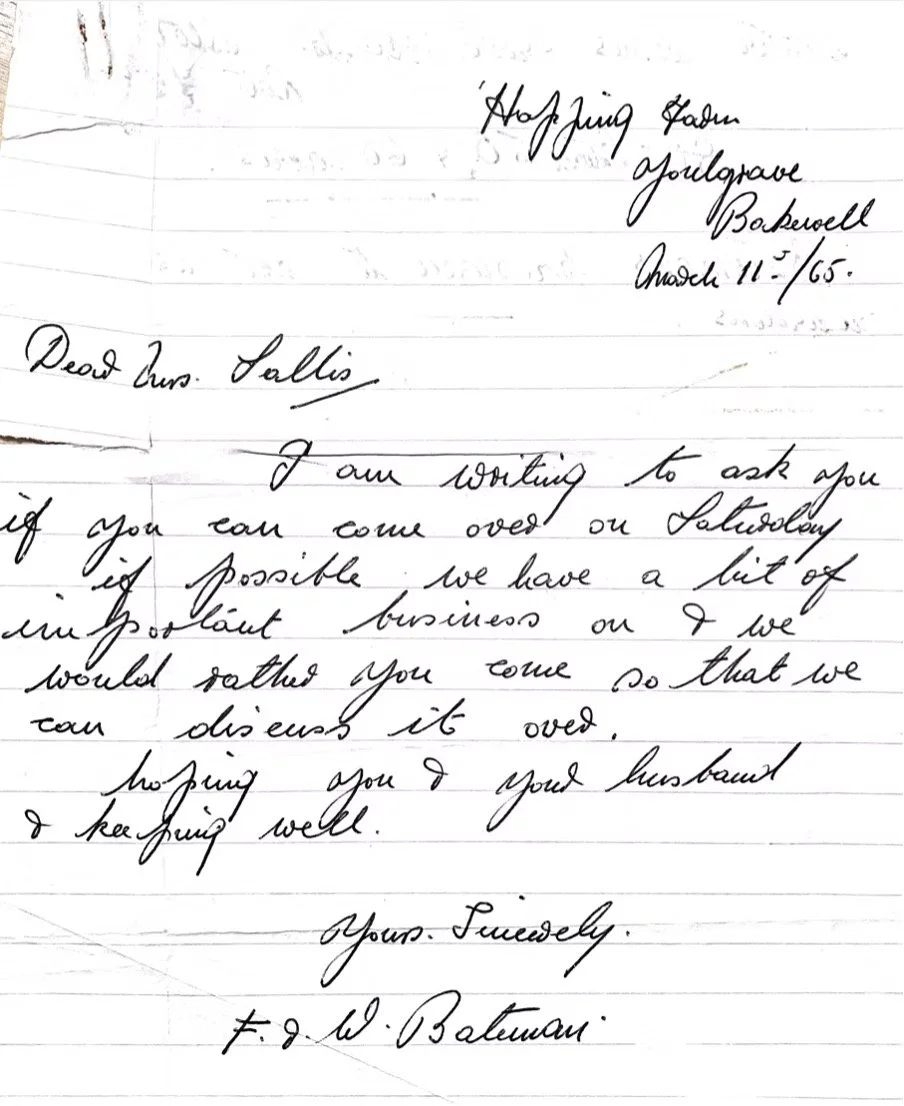 Hopping Farm
Youlgrave
Bakewell
March 11th/65.
Dear Mrs. Sallis
I am writing to ask you
if you can come over on Saturday
if possible we have a bit of
important business on & we
would rather you come so that we
can discuss it over.
hoping you & your husband
& keeping well.
Yours. Sincerely.
F. & W. Bateman.